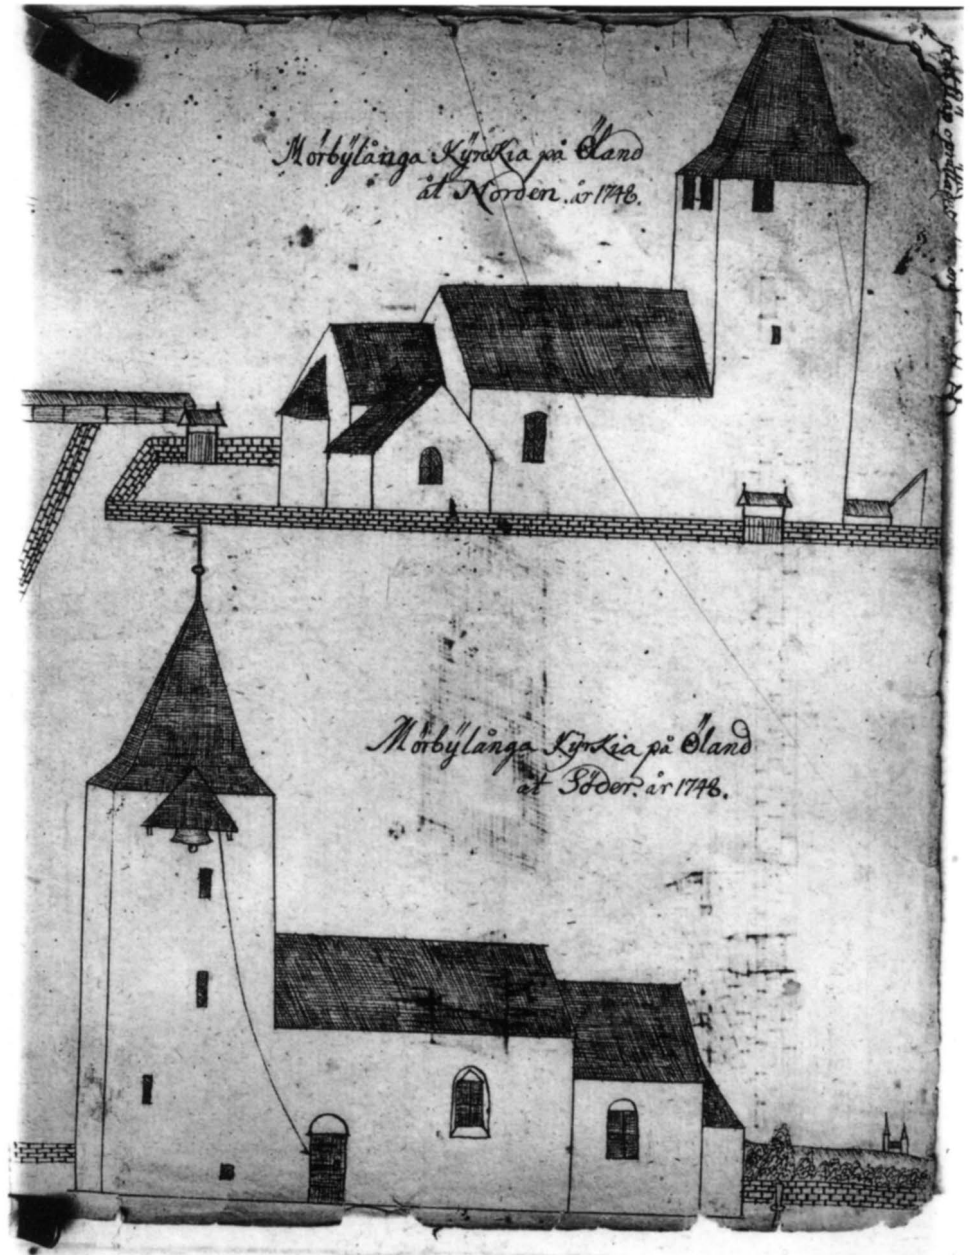 Mörbÿlånga Kÿrckia på Öland
åt Norden. år 1748.
Mörbÿlånga Kÿrkia på Öland
åt Söder. år 1748.